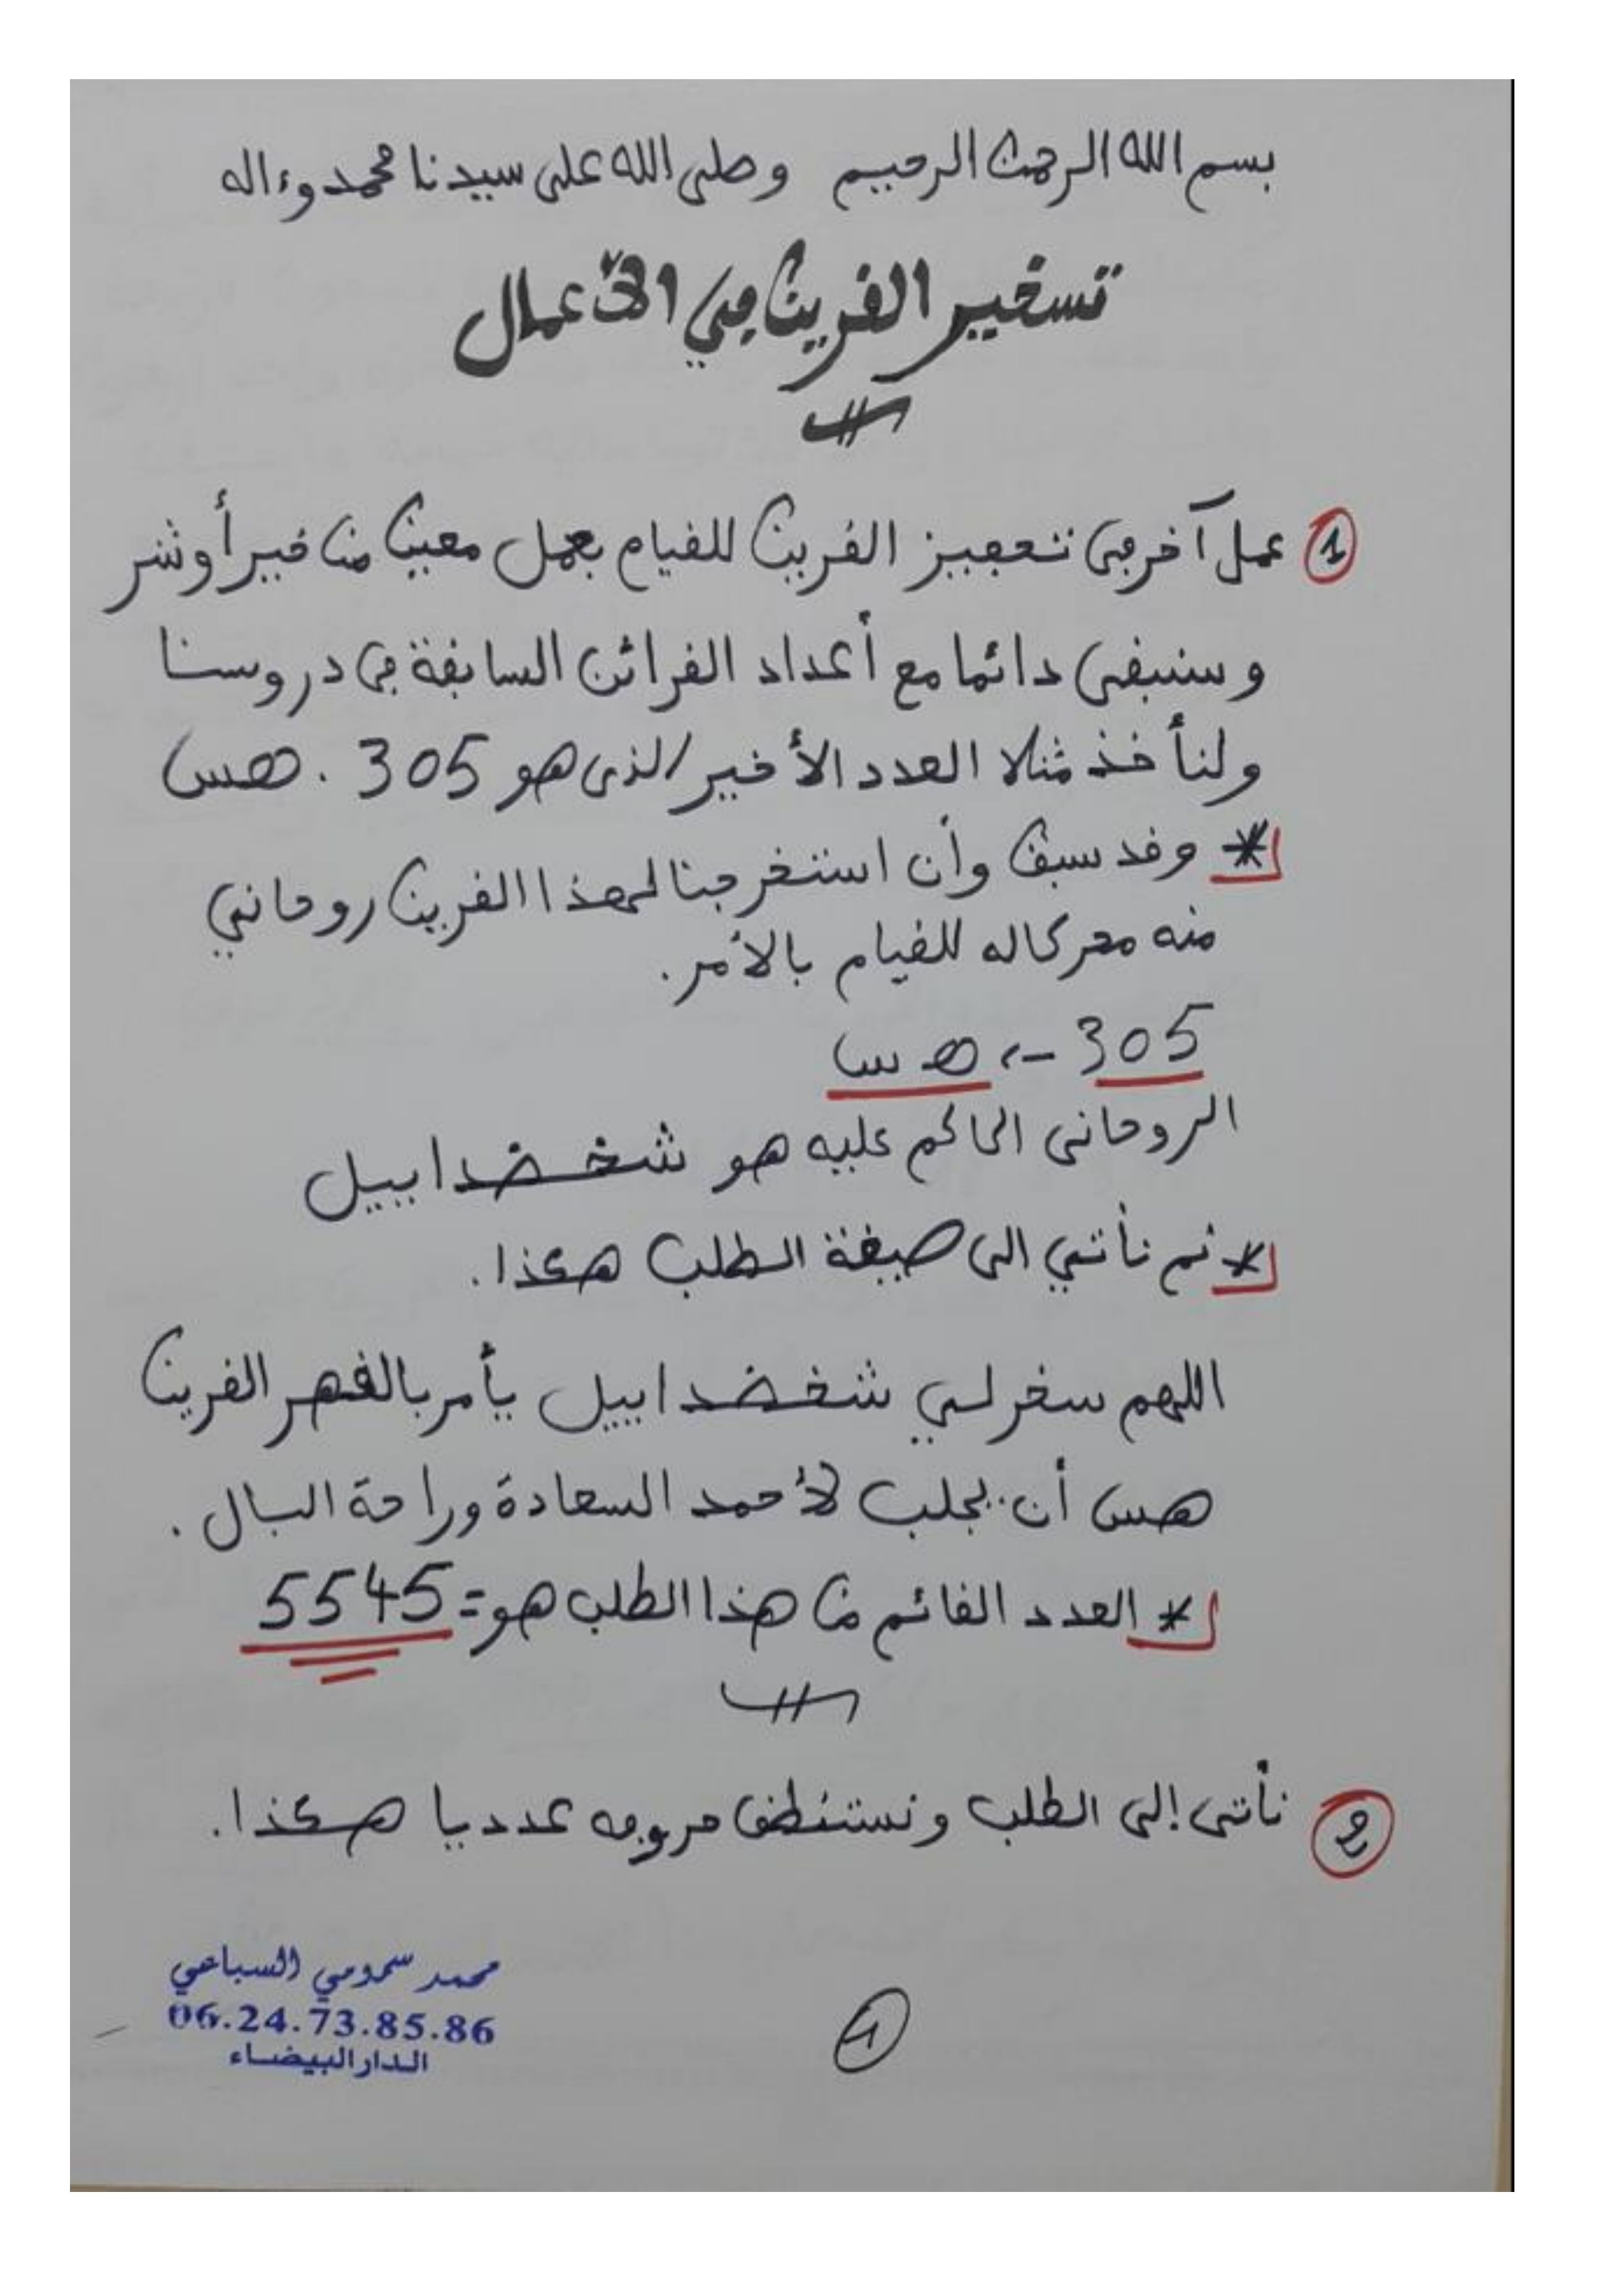 بسم الله الرحمن الرحيم وصلى الله على سيدنا محمد وءاله
تسخير القرين في الأعمال
1 عمل آخر في تحفيز القرين للقيام بعمل معين من خير أو شر
وسنبقى دائما مع أعداد القرائن السابقة في دروسنا
ولنأخذ مثلا العدد الأخير الذي هو 305 . هس
* وقد سبق وأن استخرجنا لهذا القرين روحاني
منه محركا له للقيام بالأمر.
305 -، هس
الروحانى الحاكم عليه هو شخضداييل
* ثم نأتي الى صيغة الطلب هكذا.
اللهم سخر لي شخضداييل يأمر بالقهر القرين
هس أن يجلب لأحمد السعادة وراحة البال .
* العدد القائم من هذا الطلب هو = 5545
2 نأتى إلى الطلب ونستنطق حروفه عدديا هكذا.
محمد سمومي السباعي
06.24.73.85.86
الدار البيضاء
1